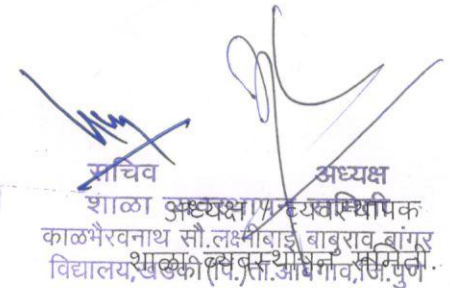 सचिव
अध्यक्ष
शाळा
अध्यक्ष / व्यवस्थापक
काळभैरवनाथ सौ.लक्ष्मीबाई बाबुराव बांगर
विद्यालय,खडकी(पिं.)ता.आंबेगाव,जि.पुणे
शाळा व्यवस्थापन समिती